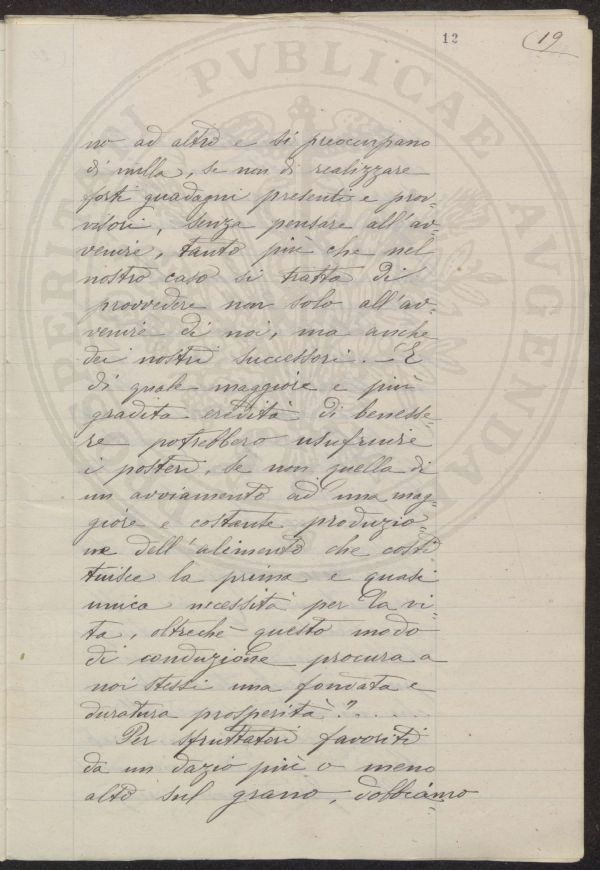 12
(19
no ad altro e si preoccupano
di nulla, se non di realizzare
forti guadagni presenti e prov-
visori, senza pensare all'av-
venire, tanto più che nel
nostro caso si tratta di
provvedere non solo all'av-
venire di noi, ma anche
dei nostri successori. - E
di quale maggiore e più
gradita eredità di benesse-
re potrebbero usufruire
i posteri, se non quella di
un avviamento ad una mag-
giore e costante produzio-
ne dell'alimento che costi
tuisce la prima e quasi
unica necessità per la vi-
ta, oltrechè questo modo
di conduzione procura a
noi stessi una fondata e
duratura prosperità?.....
Per sfruttatori favoriti
da un dazio più o meno
alto sul grano, dobbiamo
PROSPERITATI PVBLICAE AVGENDAE